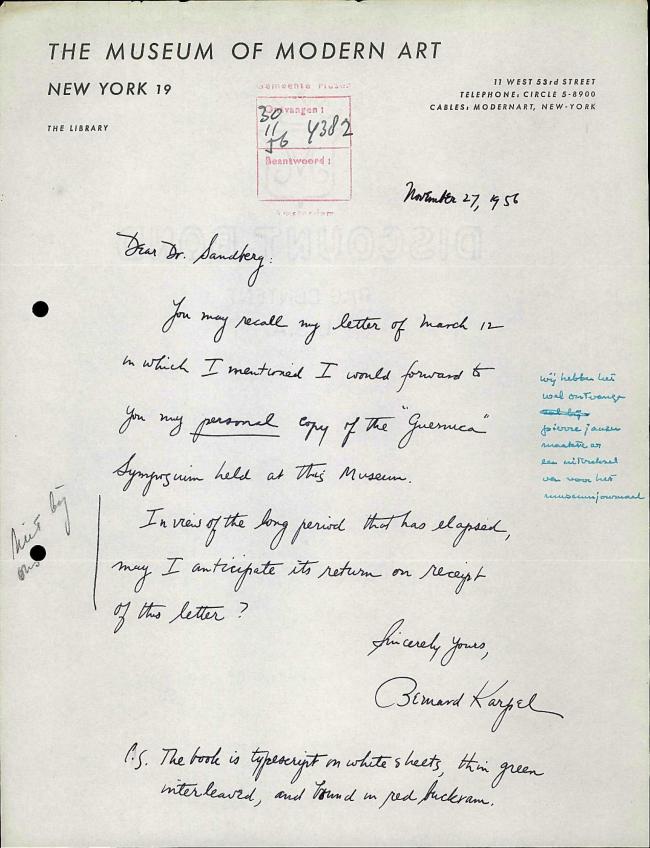 THE MUSEUM OF MODERN ART
NEW YORK 19
11 WEST 53rd STREET
TELEPHONE: CIRCLE 5-8900
CABLES: MODERNART, NEW-YORK
THE LIBRARY
Gemeente Musea
Ontvangen:
30
11
56 4382
Beantwoord:
Amsterdam
November 27, 1956
Dear Dr. Sandberg:
You may recall my letter of March 12
in which I mentioned I would forward to
you my personal copy of the "Guernica"
Symposium held at this Museum.
In view of the long period that has elapsed,
may I anticipate its return on receipt
of this letter?
Sincerely yours,
Bernard Karpel
P.S. The book is typescript on white sheets, thin green
interleaved, and bound in red buckram.
niet bij
ons
wij hebben het
wel ontvangen
pierre janssen
maakte er
een uittreksel
van voor het
museumjournaal
DISCOUNT BOND
RAG CONTENT